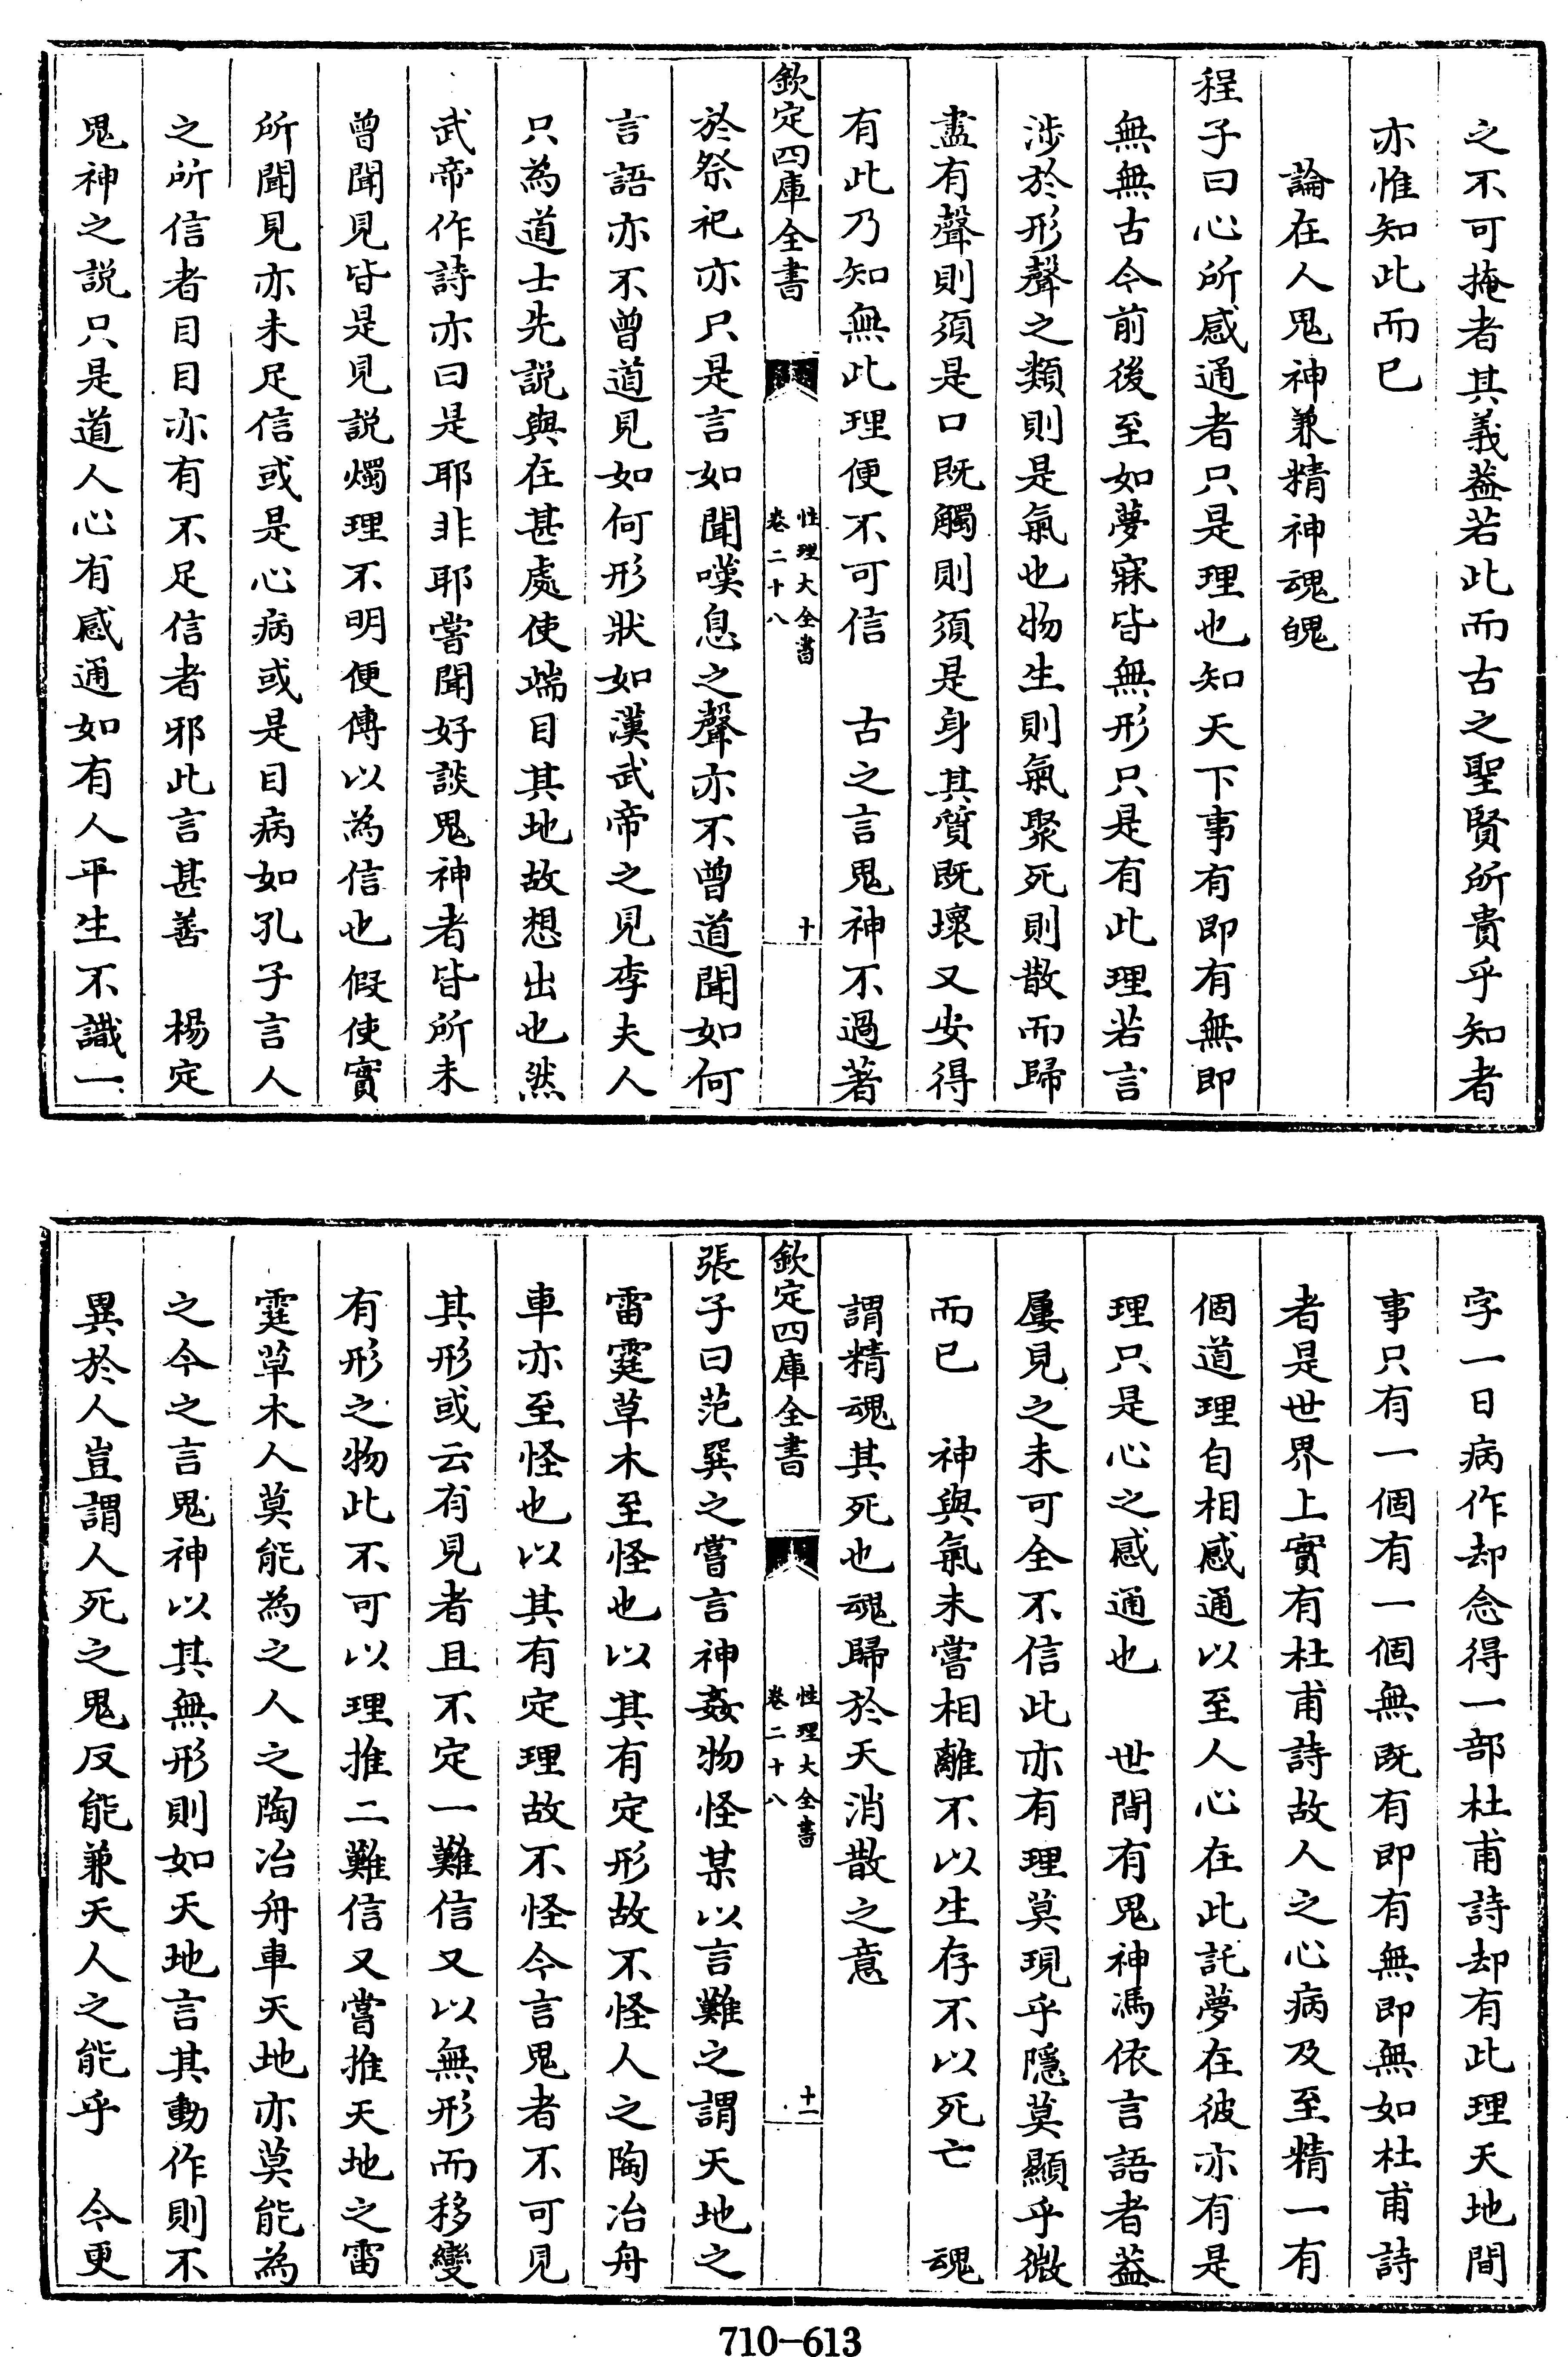 之不可掩者其義葢若此而古之聖賢所貴乎知者
亦惟知此而已
論在人鬼神兼精神魂魄
程子曰心所感通者只是理也知天下事有即有無即
無無古今前後至如夢寐皆無形只是有此理若言
涉於形聲之類則是氣也物生則氣聚死則散而歸
盡有聲則須是口既觸則須是身其質既壞又安得
有此乃知無此理便不可信　古之言鬼神不過著
欽定四庫全書
性理大全書
卷二十八
十
於祭祀亦只是言如聞嘆息之聲亦不曾道聞如何
言語亦不曾道見如何形狀如漢武帝之見李夫人
只為道士先説與在甚處使端目其地故想出也然
武帝作詩亦曰是耶非耶嘗聞好談鬼神者皆所未
曾聞見皆是見説燭理不明便傳以為信也假使實
所聞見亦未足信或是心病或是目病如孔子言人
之所信者目目亦有不足信者邪此言甚善　楊定
鬼神之説只是道人心有感通如有人平生不識一
字一日病作却念得一部杜甫詩却有此理天地間
事只有一個有一個無既有即有無即無如杜甫詩
者是世界上實有杜甫詩故人之心病及至精一有
個道理自相感通以至人心在此託夢在彼亦有是
理只是心之感通也　世間有鬼神馮依言語者葢
屢見之未可全不信此亦有理莫現乎隱莫顯乎微
而已　神與氣未嘗相離不以生存不以死亡　魂
謂精魂其死也魂歸於天消散之意
欽定四庫全書
性理大全書
卷二十八
十一
張子曰范巽之嘗言神姦物怪某以言難之謂天地之
雷霆草木至怪也以其有定形故不怪人之陶冶舟
車亦至怪也以其有定理故不怪今言鬼者不可見
其形或云有見者且不定一難信又以無形而移變
有形之物此不可以理推二難信又嘗推天地之雷
霆草木人莫能為之人之陶冶舟車天地亦莫能為
之今之言鬼神以其無形則如天地言其動作則不
異於人豈謂人死之鬼反能兼天人之能乎　今更
710-613